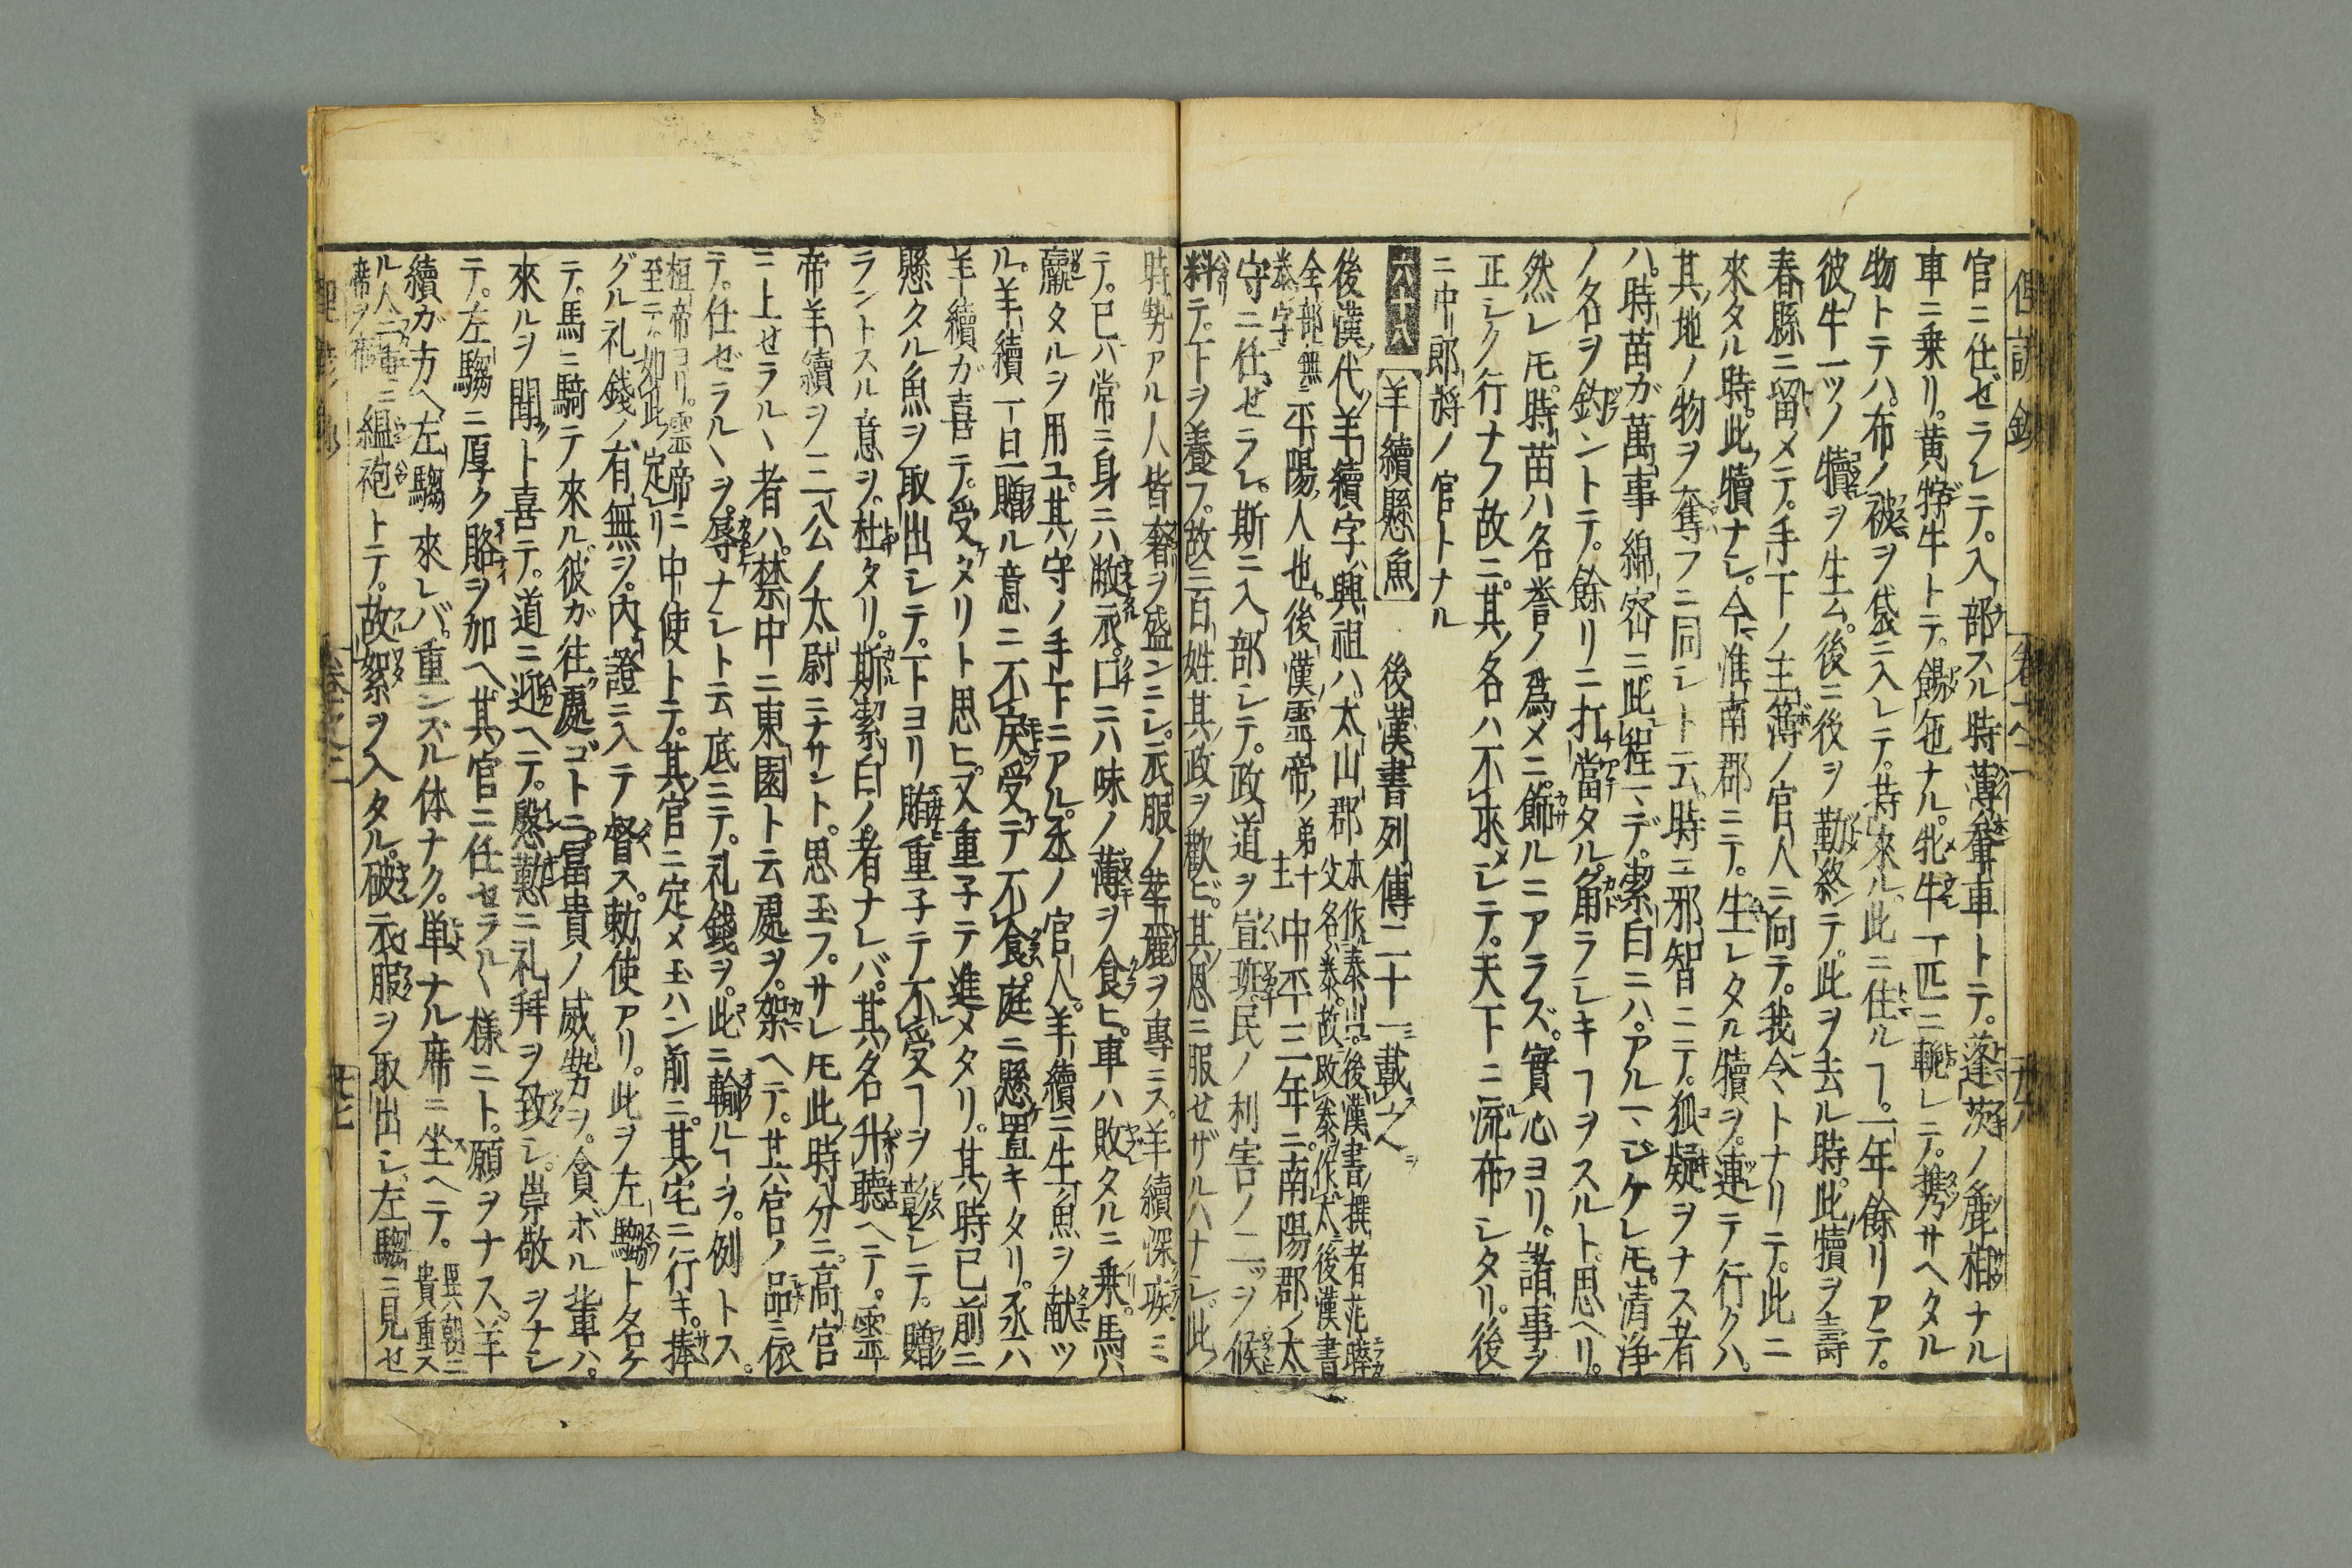 官ニ仕ゼラレテ。入部スル時薄軬車トテ。蓬茨ノ麁相ナル
車ニ乗リ。黄牸牛トテ。餳㐌ナル。牝牛一匹ニ軶シテ。携サヘタル
物トテハ。布ノ被ヲ袋ニ入レテ。持來ル。此ニ住ルヿ。一年餘リアテ。
彼牛一ツノ犢ヲ生ム。後ニ後ヲ勤終テ。此ヲ去ル時。此犢ヲ壽
春縣ニ留メテ。手下ノ主簿ノ官人ニ向テ。我今トナリテ。此ニ
來タル時。此犢ナシ。今淮南郡ニテ。生レタル犢ヲ。連テ行クハ。
其地ノ物ヲ奪フニ同シト云。時ニ邪智ニテ。狐疑ヲナス者
ハ。時苗ガ萬事綿宻ニ。此程マデ。潔白ニハ。アルマジケレ𪜈。清浄
ノ名ヲ釣ントテ。餘リニ打當タル。角ラシキヿヲスルト。思ヘリ。
然レ𪜈。時苗ハ名誉ノ爲メニ。飾ルニアラズ。實心ヨリ。諸事ヲ
正シク行ナフ故ニ。其ノ名ハ不求メシテ。天下ニ流布シタリ。後
ニ中郎將ノ官トナル
六十八 羊續懸魚 後漢書列傳二十一ニ載之
後漢ノ代。羊續字ハ興祖ハ太山郡 本作泰山。後漢書ノ撰者范曄
父名ハ泰。故改泰作太。後漢書
全部無泰字 平陽ノ人也。後漢ノ靈帝ノ弟十主 中平三年ニ。南陽郡ノ太
守ニ仕ゼラレ。斯ニ入部シテ。政道ヲ宣。班民ノ利害ノ二ツヲ候
料テ。下ヲ養フ。故ニ百姓其政ヲ歡ビ。其恩ニ服セザルハナシ。此
時勢アル人皆奢ヲ盛ンニシ。衣服ノ華麗ヲ專ニス。羊續深疾ミ
テ。已ハ常ニ身ニハ敝衣。口ニハ味ノ薄ヲ食ヒ。車ハ敗タルニ乗。馬ハ
羸タルヲ用ユ。其守ノ手下ニアル丞ノ官人。羊續ニ生魚ヲ献ツ
ル。羊續一旦贈ル意ニ不戻受テ不食。庭ニ懸置キタリ。丞ハ
羊續ガ喜テ。受タリト思ヒ。又重子テ進メタリ。其時已前ニ
懸タル魚ヲ取出シテ。下ヨリ賄重子テ不受ヿヲ彰シテ。贈
ラントスル意ヲ。杜タリ。斯潔白ノ者ナレバ。其名升聽ヘテ。靈
帝羊續ヲ三公ノ太尉ニナサント。思玉フ。サレ𪜈此時分ニ。高官
ニ上セラルヽ者ハ。禁中ニ東園ト云處ヲ。架ヘテ。其官ノ品ニ依
テ。仕ゼラルヽヲ。辱ナシト云底ニテ。礼錢ヲ。此ニ輸ルヿヲ。例トス。
桓帝ヨリ。靈帝ニ
至テ。如此定リ 中使トテ。其官ニ定メ玉ハン前ニ。其宅ニ行キ。捧
グル礼錢ノ有無ヲ。内證ニ入テ督ス。勅使アリ。此ヲ左騶ト名ケ
テ。馬ニ騎テ來ル彼ガ往處ゴトニ。冨貴ノ威勢ヲ。貪ボル輩ハ。
來ルヲ聞ト喜テ。道ニ迎ヘテ。慇懃ニ礼拜ヲ致シ。崇敬ヲナシ
テ。左騶ニ厚ク賂ヲ加ヘ其官ニ任セラルヽ樣ニト。願ヲナス。羊
續ガ方ヘ左騶來レバ。重ンズル体ナク。単ナル席ニ坐ヘテ。 異朝ニ貴重ス
ル人ニ 縕袍トテ。故絮ヲ入タル。破衣服ヲ取出シ左騶ニ見セ